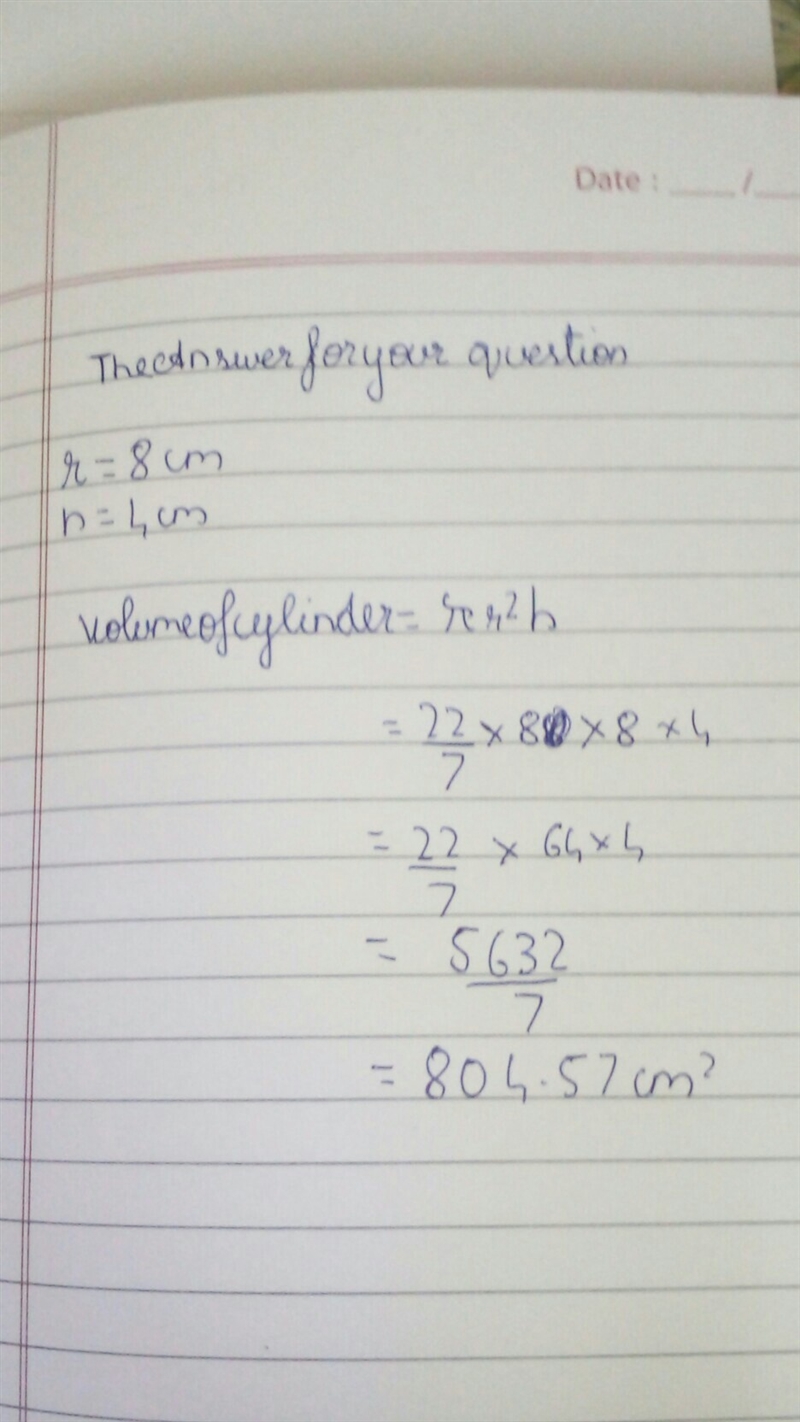 Date : ___ / __
The Answer for your question
r = 8 cm
h = 4 cm
Volume of cylinder = πr²h
= 22/7 × 8 × 8 × 4
= 22/7 × 64 × 4
= 5632/7
= 804.57 cm³